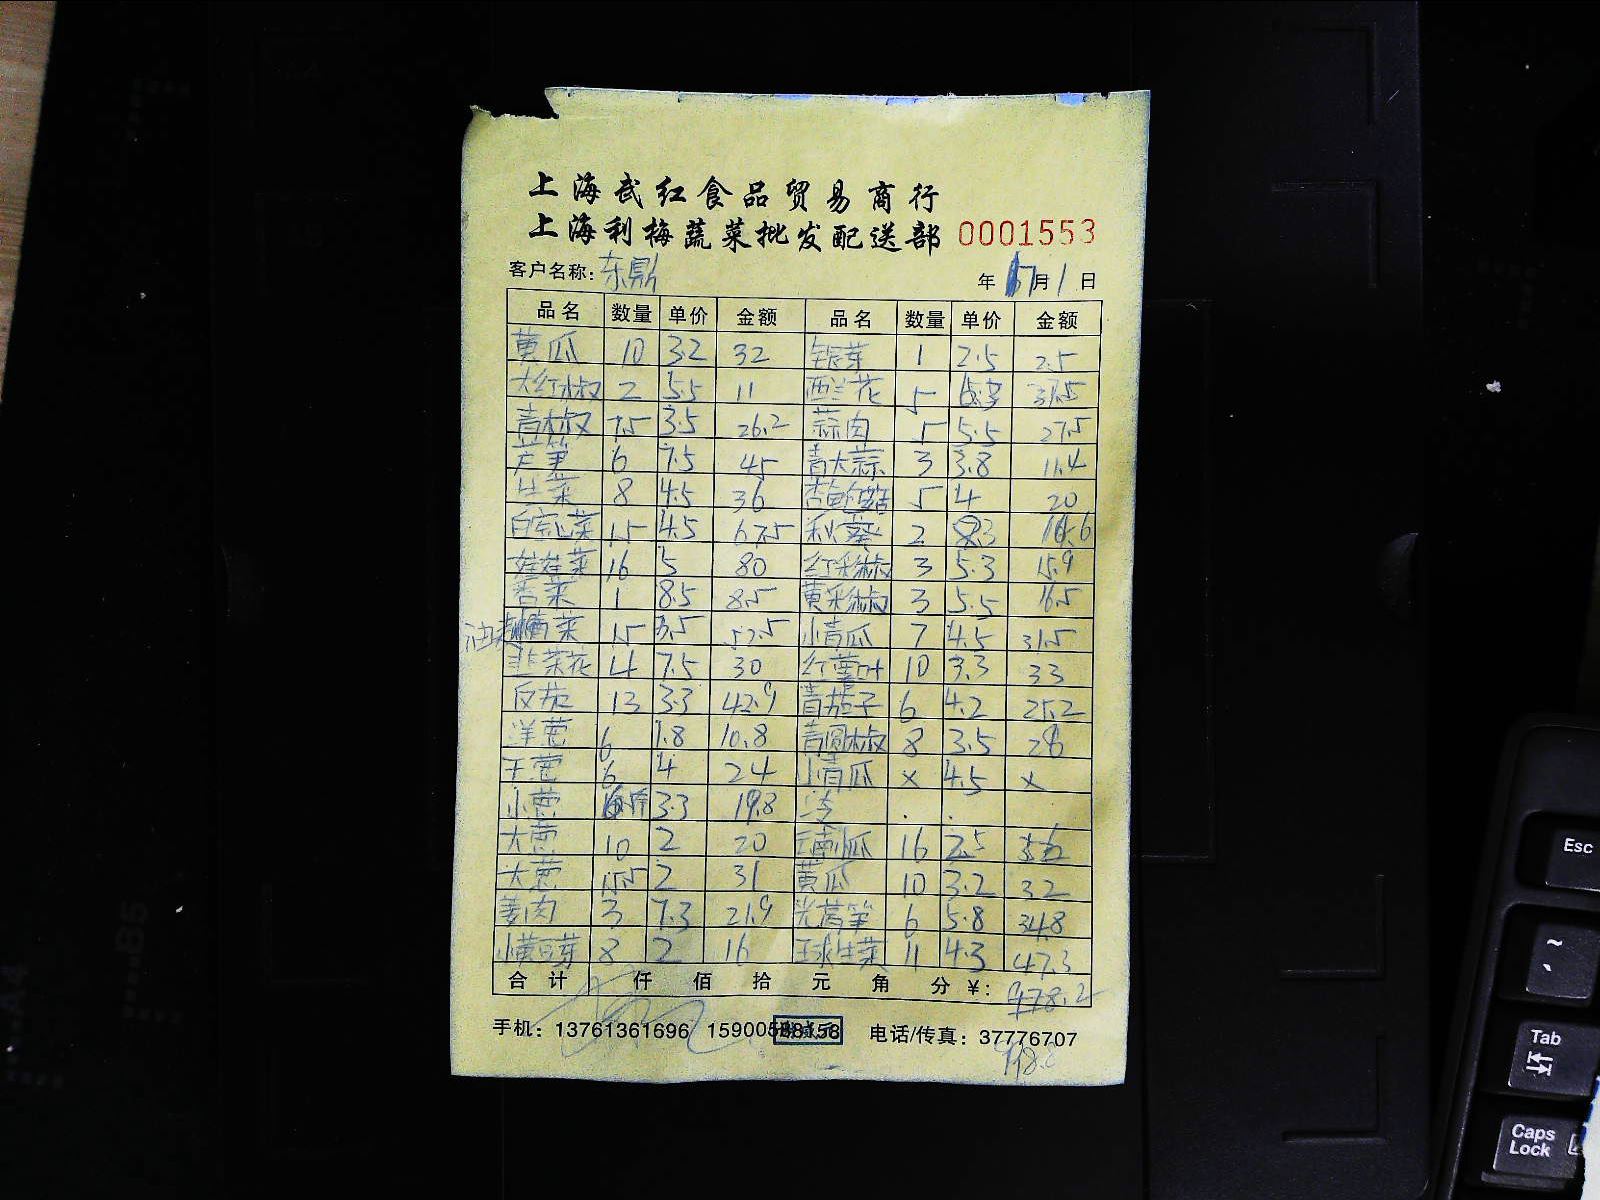 上海武红食品贸易商行
上海利梅蔬菜批发配送部 0001553
客户名称: 东鼎 年 7月1日
品名 数量 单价 金额 品名 数量 单价 金额
黄瓜 10 3.2 32 银芽 1 2.5 2.5
大红椒 2 5.5 11 西兰花 5 37.5
青椒 7.5 3.5 26.2 蒜肉 5 5.5 27.5
芦笋 6 7.5 45 青大蒜 3 3.8 11.4
生菜 8 4.5 36 杏鲍菇 5 4 20
白空心菜 15 4.5 67.5 秋葵 2 8.3 16.6
娃娃菜 16 5 80 红彩椒 3 5.3 15.9
香菜 1 8.5 8.5 黄彩椒 3 5.5 16.5
油麦菜 15 3.5 52.5 小青瓜 7 4.5 31.5
韭菜花 4 7.5 30 红薯叶 10 3.3 33
反茄 13 3.3 42.9 青茄子 6 4.2 25.2
洋葱 6 1.8 10.8 青圆椒 8 3.5 28
干葱 6 4 24 小青瓜 x 4.5 x
小葱 3.3 19.8
大葱 10 2 20 南瓜 16
大葱 15.5 2 31 黄瓜 10 3.2 32
姜肉 3 7.3 21.9 光莴笋 6 5.8 34.8
小黄豆芽 8 2 16 球生菜 11 4.3 47.3
合计 仟 佰 拾 元 角 分 ¥: 978.2
手机: 13761361696 15900588158 电话/传真: 37776707